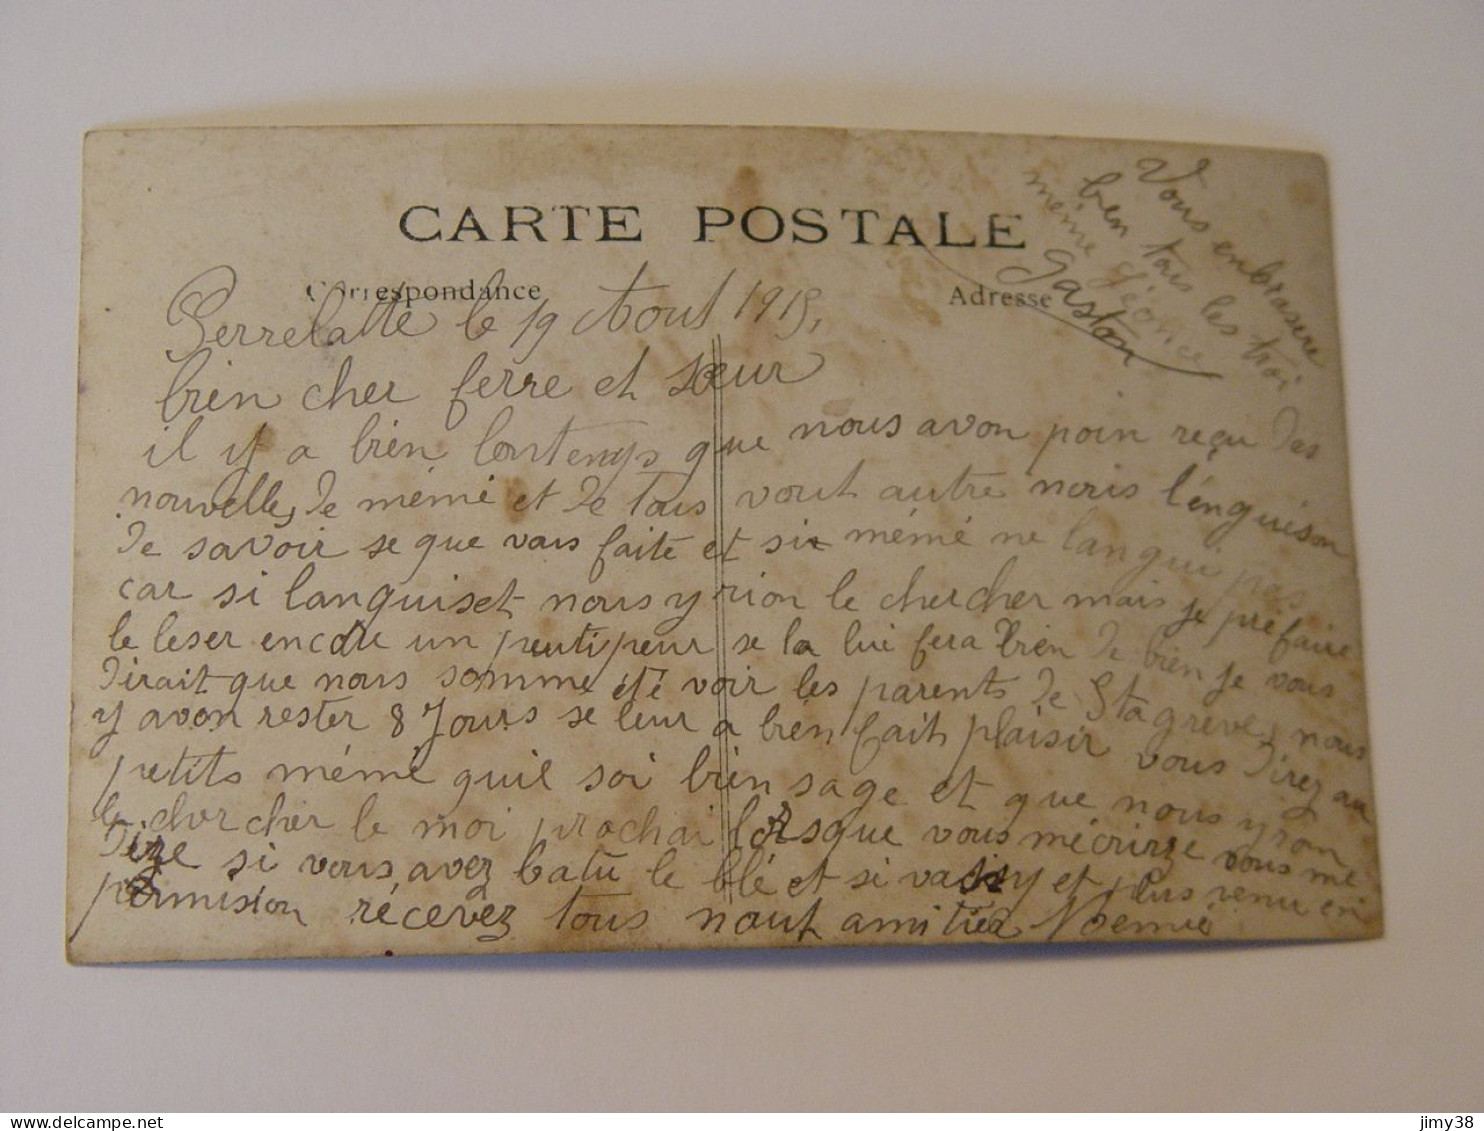 CARTE POSTALE
Correspondance
Adresse
Vous enbrasere
bien tous les troi
même
Gaston
Perrelatte le 19 Aout 1915,
bien cher ferre et sœur
il y a bien lontemps que nous avon poin reçu des
nouvelle, de mémé et de tous vout autre nous l'enguison
de savoir se que vous faite et si mémé ne langui pas
car si languiset nous y rion le chercher mais je préfaire
le leser encore un peuti peur se la lui fera bien de bien je vous
dirait que nous somme été voir les parents de Stagreve, nous
y avon rester 8 Jours se leur a bien fait plaisir vous direz au
petits mémé quil soi bien sage et que nous yron
le chercher le moi prochai lorsque vous mécrirze vous me
dize si vous avez batu le blé et si va y et plus venu en
permision récevez tous nout amitiea Noemie
jimy38